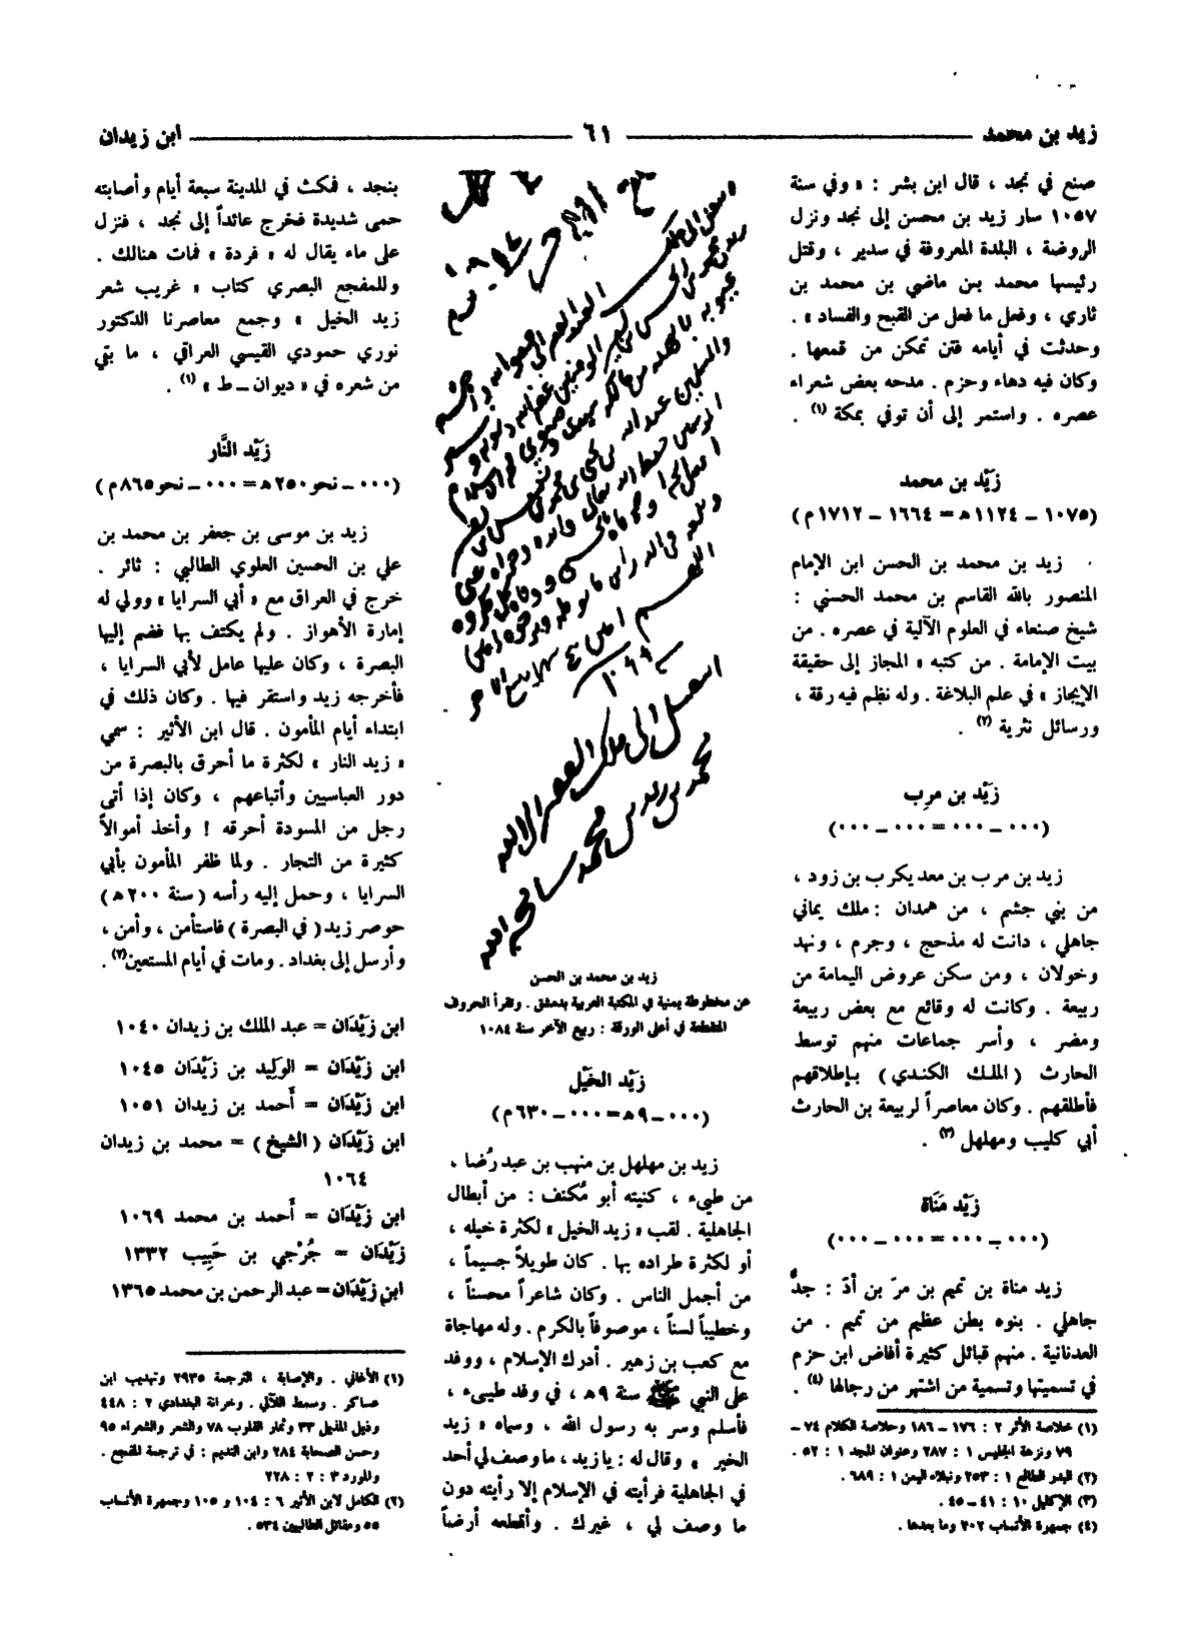 زيد بن محمد
٦١
ابن زيدان
صنع في نجد ، قال ابن بشر : « وفي سنة
١٠٥٧ سار زيد بن محسن إلى نجد ونزل
الروضة ، البلدة المعروفة في سدير ، وقتل
رئيسها محمد بن ماضي بن محمد بن
ثاري ، وفعل ما فعل من القبح والفساد » .
وحدثت في أيامه فتن تمكن من قمعها .
وكان فيه دهاء وحزم . مدحه بعض شعراء
عصره . واستمر إلى أن توفي بمكة (١) .
زَيْد بن محمد
(١٠٧٥ – ١١٢٤هـ = ١٦٦٤ – ١٧١٢م)
زيد بن محمد بن الحسن ابن الإمام
المنصور بالله القاسم بن محمد الحسني :
شيخ صنعاء في العلوم الآلية في عصره . من
بيت الإمامة . من كتبه « المجاز إلى حقيقة
الإيجاز » في علم البلاغة . وله نظم فيه رقة ،
ورسائل نثرية (٢) .
زَيْد بن مرِب
(٠٠٠ – ٠٠٠ = ٠٠٠ – ٠٠٠)
زيد بن مرب بن معد يكرب بن زود ،
من بني جشم ، من همدان : ملك يماني
جاهلي ، دانت له مذحج ، وجرم ، ونهد
وخولان ، ومن سكن عروض اليمامة من
ربيعة . وكانت له وقائع مع بعض ربيعة
ومضر ، وأسر جماعات منهم توسط
الحارث (الملك الكندي) بإطلاقهم
فأطلقهم . وكان معاصراً لربيعة بن الحارث
أبي كليب ومهلهل (٣) .
زَيْد مَنَاة
(٠٠٠ – ٠٠٠ = ٠٠٠ – ٠٠٠)
زيد مناة بن تميم بن مرّ بن أدّ : جدٌّ
جاهلي . بنوه بطن عظيم من تميم . من
العدنانية . منهم قبائل كثيرة أفاض ابن حزم
في تسميتها وتسمية من اشتهر من رجالها (٤) .
(١) خلاصة الأثر ٢ : ١٧٦ – ١٨٦ وخلاصة الكلام ٧٤ –
٧٩ ونزهة الجليس ١ : ٢٨٧ وعنوان المجد ١ : ٥٢ .
(٢) البدر الطالع ١ : ٢٥٣ ونبلاء اليمن ١ : ٦٨٩ .
(٣) الإكليل ١٠ : ٤١ – ٤٥ .
(٤) جمهرة الأنساب ٢٠٢ وما بعدها .
زيد بن محمد بن الحسن
عن مخطوطة يمنية في المكتبة العربية بدمشق . وتقرأ الحروف
المقطعة في أعلى الورقة : ربيع الآخر سنة ١٠٨٤
زَيْد الخَيْل
(٠٠٠ – ٩هـ = ٠٠٠ – ٦٣٠م)
زيد بن مهلهل بن منهب بن عبد رُضا ،
من طيىء ، كنيته أبو مُكنف : من أبطال
الجاهلية . لقب « زيد الخيل » لكثرة خيله ،
أو لكثرة طراده بها . كان طويلاً جسيماً ،
من أجمل الناس . وكان شاعراً محسناً ،
وخطيباً لسناً ، موصوفاً بالكرم . وله مهاجاة
مع كعب بن زهير . أدرك الإسلام ، ووفد
على النبي ﷺ سنة ٩هـ ، في وفد طيىء ،
فأسلم وسر به رسول الله ، وسماه « زيد
الخير » وقال له : يا زيد ، ما وصف لي أحد
في الجاهلية فرأيته في الإسلام إلا رأيته دون
ما وصف لي ، غيرك . وأقطعه أرضاً
بنجد ، فمكث في المدينة سبعة أيام وأصابته
حمى شديدة فخرج عائداً إلى نجد ، فنزل
على ماء يقال له « فردة » فمات هنالك .
وللمفجع البصري كتاب « غريب شعر
زيد الخيل » وجمع معاصرنا الدكتور
نوري حمودي القيسي العراقي ، ما بقي
من شعره في « ديوان – ط » (١) .
زَيْد النَّار
(٠٠٠ – نحو ٢٥٠هـ = ٠٠٠ – نحو ٨٦٥م)
زيد بن موسى بن جعفر بن محمد بن
علي بن الحسين العلوي الطالبي : ثائر .
خرج في العراق مع « أبي السرايا » وولي له
إمارة الأهواز . ولم يكتف بها فضم إليها
البصرة ، وكان عليها عامل لأبي السرايا ،
فأخرجه زيد واستقر فيها . وكان ذلك في
ابتداء أيام المأمون . قال ابن الأثير : سمي
« زيد النار » لكثرة ما أحرق بالبصرة من
دور العباسيين وأتباعهم ، وكان إذا أتى
رجل من المسودة أحرقه ! وأخذ أموالاً
كثيرة من التجار . ولما ظفر المأمون بأبي
السرايا ، وحمل إليه رأسه (سنة ٢٠٠هـ)
حوصر زيد (في البصرة) فاستأمن ، وأمن ،
وأرسل إلى بغداد . ومات في أيام المستعين (٢) .
ابن زَيْدَان = عبد الملك بن زيدان ١٠٤٠
ابن زَيْدَان = الوَلِيد بن زَيْدَان ١٠٤٥
ابن زَيْدَان = أَحمد بن زيدان ١٠٥١
ابن زَيْدَان (الشيخ) = محمد بن زيدان
١٠٦٤
ابن زَيْدَان = أَحمد بن محمد ١٠٦٩
زَيْدَان = جُرْجي بن حَبِيب ١٣٣٢
ابن زَيْدَان = عبد الرحمن بن محمد ١٣٦٥
(١) الأغاني . والإصابة ، الترجمة ٢٩٣٥ وتهذيب ابن
عساكر . وسمط اللآلي . وخزانة البغدادي ٢ : ٤٤٨
وذيل المذيل ٣٣ وثمار القلوب ٧٨ والشعر والشعراء ٩٥
وحسن الصحابة ٢٨٤ وابن النديم : في ترجمة المفجع .
والمورد ٣ : ٢ : ٢٢٨
(٢) الكامل لابن الأثير ٦ : ١٠٤ و ١٠٥ وجمهرة الأنساب
٥٥ ومقاتل الطالبيين ٥٣٤ .